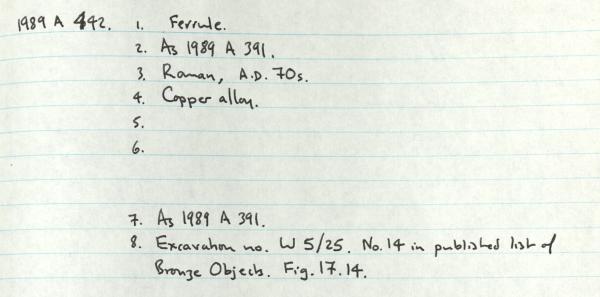 1989 A 442. 1. Ferrule.
2. As 1989 A 391.
3. Roman, A.D. 70s.
4. Copper alloy.
5.
6.
7. As 1989 A 391.
8. Excavation no. W 5/25. No. 14 in published list of
Bronze Objects. Fig. 17.14.